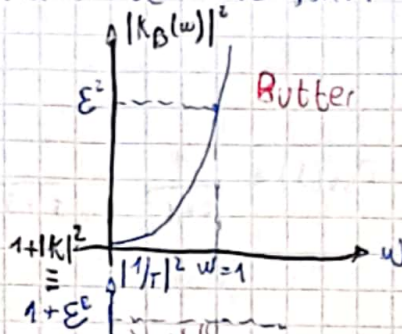 |K_B(w)|²
ε²
Butter
1+|K|²
|1/T|² w=1
w
≡
1+ε²